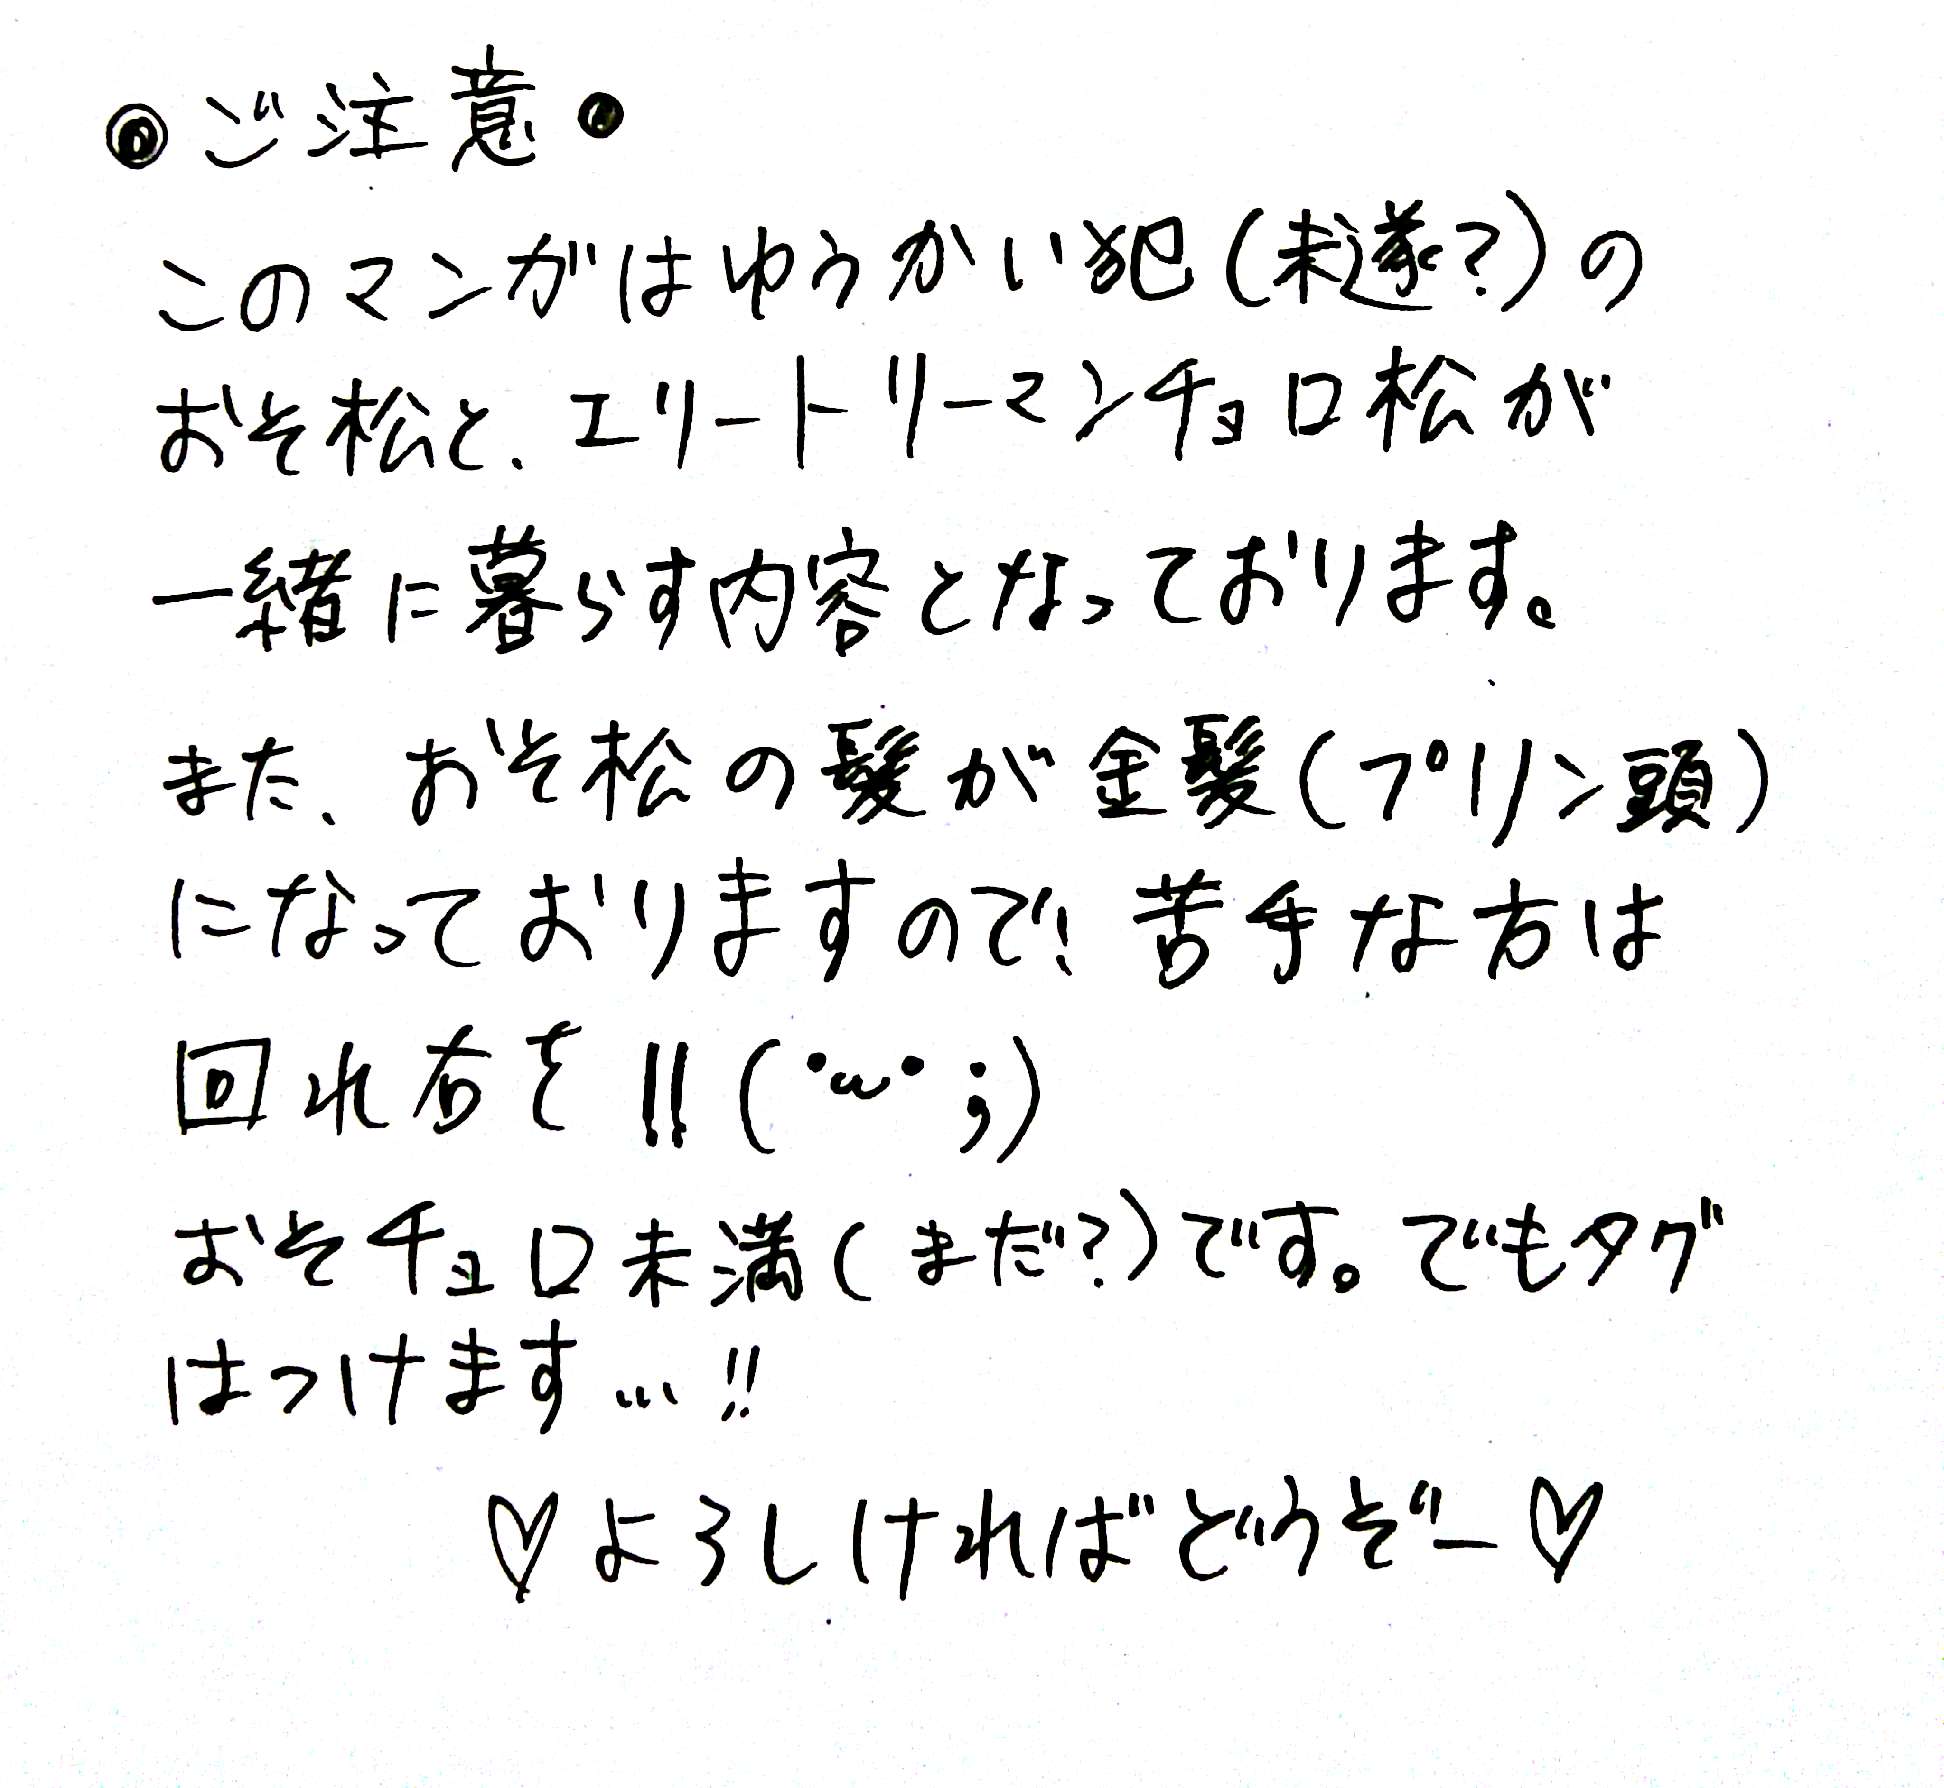 ●ご注意●
このマンガはゆうかい犯(未遂?)の
おそ松と、エリートリーマンチョロ松が
一緒に暮らす内容となっております。
また、おそ松の髪が金髪(プリン頭)
になっておりますので! 苦手な方は
回れ右を!!(・ω・;)
おそチョロ未満(まだ?)です。でもタグ
はつけます…!!
♡よろしければどうぞー♡